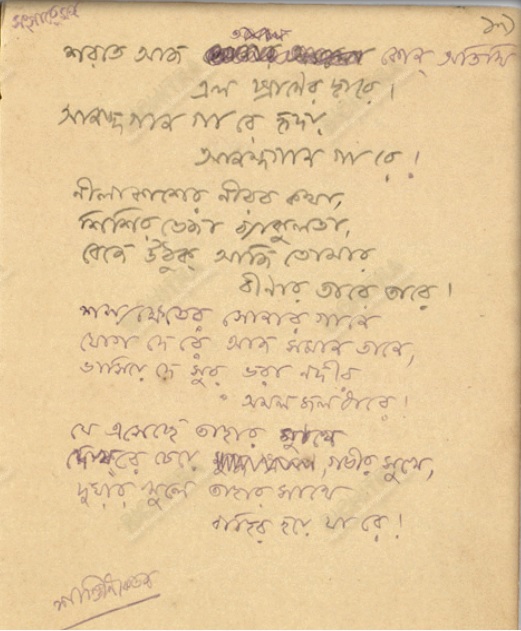 শরতে আজ কোন্ অতিথি
এল প্রাণের দ্বারে।
আনন্দগান গা রে হৃদয়
আনন্দগান গা রে!
নীলাকাশের নীরব কথা,
শিশির ভেজা ব্যাকুলতা,
বেজে উঠুক্ আজি তোমার
বীণার তারে তারে!
শস্যক্ষেতের সোনার গানে
যোগ দে রে আজ সমান তানে,
ভাসিয়ে দে সুর ভরা নদীর
অমল জলধারে!
যে এসেছে তাহার মুখে
দেখ্‌রে চেয়ে গভীর সুখে,
দুয়ার খুলে তাহার সাথে
বাহির হয়ে যা রে!
শান্তিনিকেতন